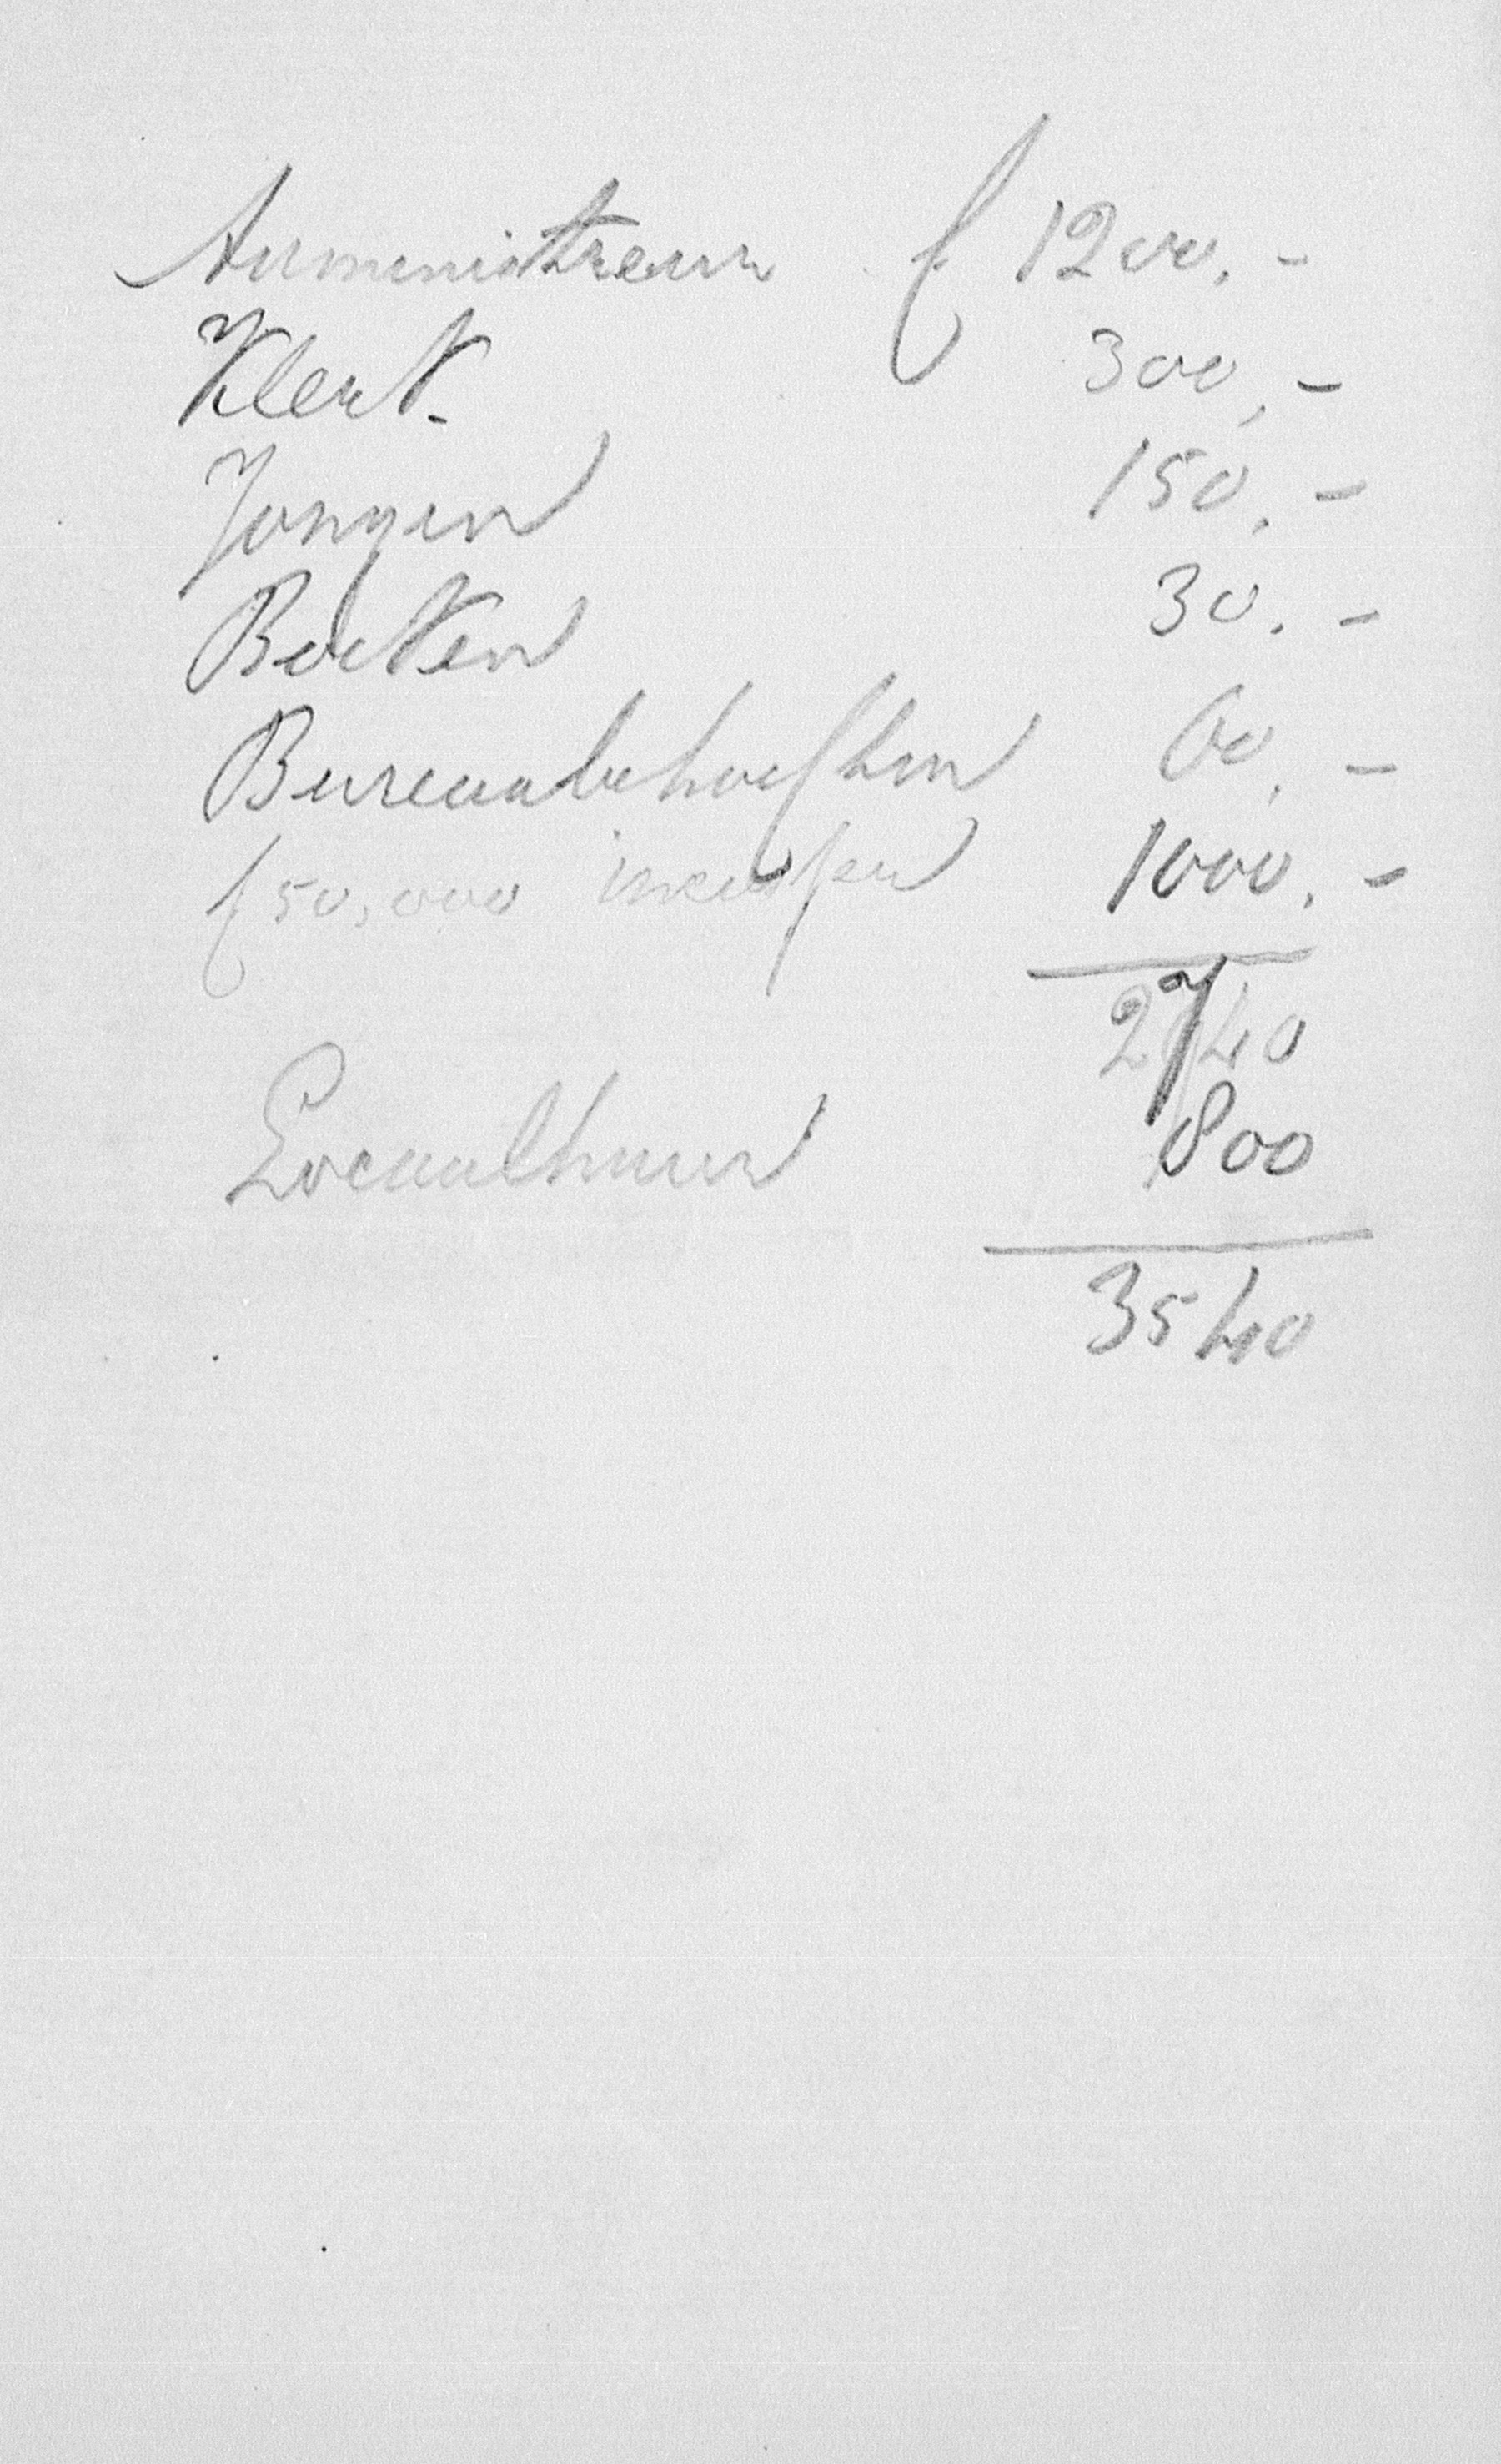 Administreur f 1200.-
Klerk. 300,-
Jongen 150.-
Boeken 30.-
Bureaubehoeften 60.-
f 50,000 inkoopen 1000.-
2740
Locaalhuur 800
3540